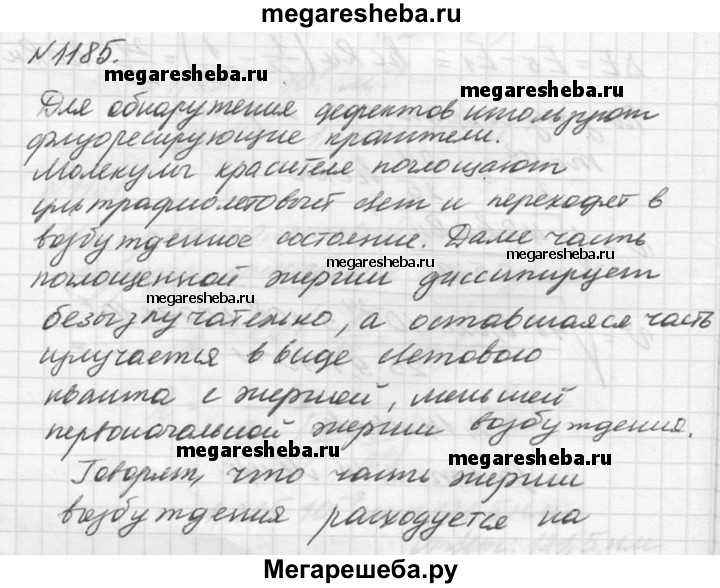 megaresheba.ru
N1185.
megaresheba.ru megaresheba.ru
Для обнаружения дефектов используют
флуоресцирующие красители.
Молекулы красителя поглощают
ультрафиолетовый свет и переходят в
возбужденное состояние. Далее часть
поглощенной энергии диссипирует
megaresheba.ru megaresheba.ru
безызлучательно, а оставшаяся часть
излучается в виде светового
кванта с энергией, меньшей
первоначальной энергии возбуждения.
megaresheba.ru megaresheba.ru
Говорят, что часть энергии
возбуждения расходуется на
Мегарешеба.ру